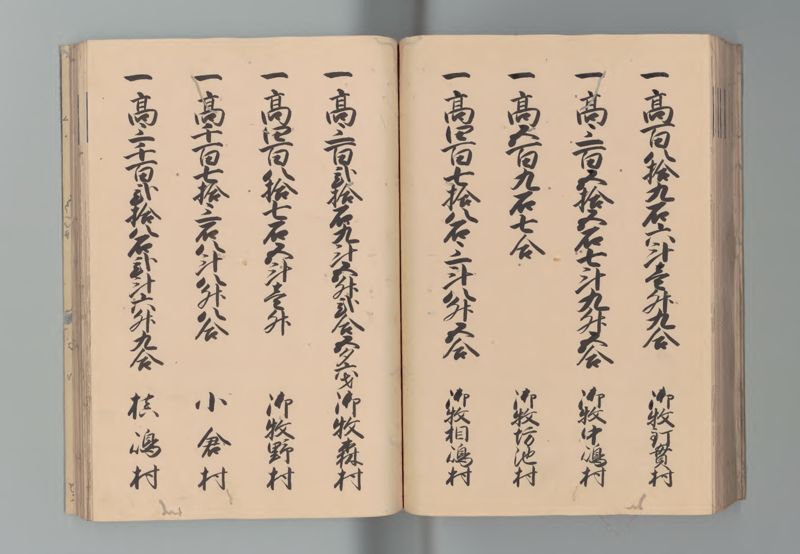 一 髙百八拾九石六斗壱升九合 御牧釘貫村
一 髙三百五拾五石七斗九升五合 御牧中嶋村
一 髙五百九石七合 御牧坊池村
一 髙四百七拾八石三斗八升五合 御牧相嶋村
一 髙三百弐拾石九斗五升弐合五夕六才 御牧森村
一 髙四百八拾七石五斗壱升 御牧野村
一 髙千百七拾三石八斗八升八合 小倉村
一 髙三千百弐拾八石弐斗六升九合 槙嶋村